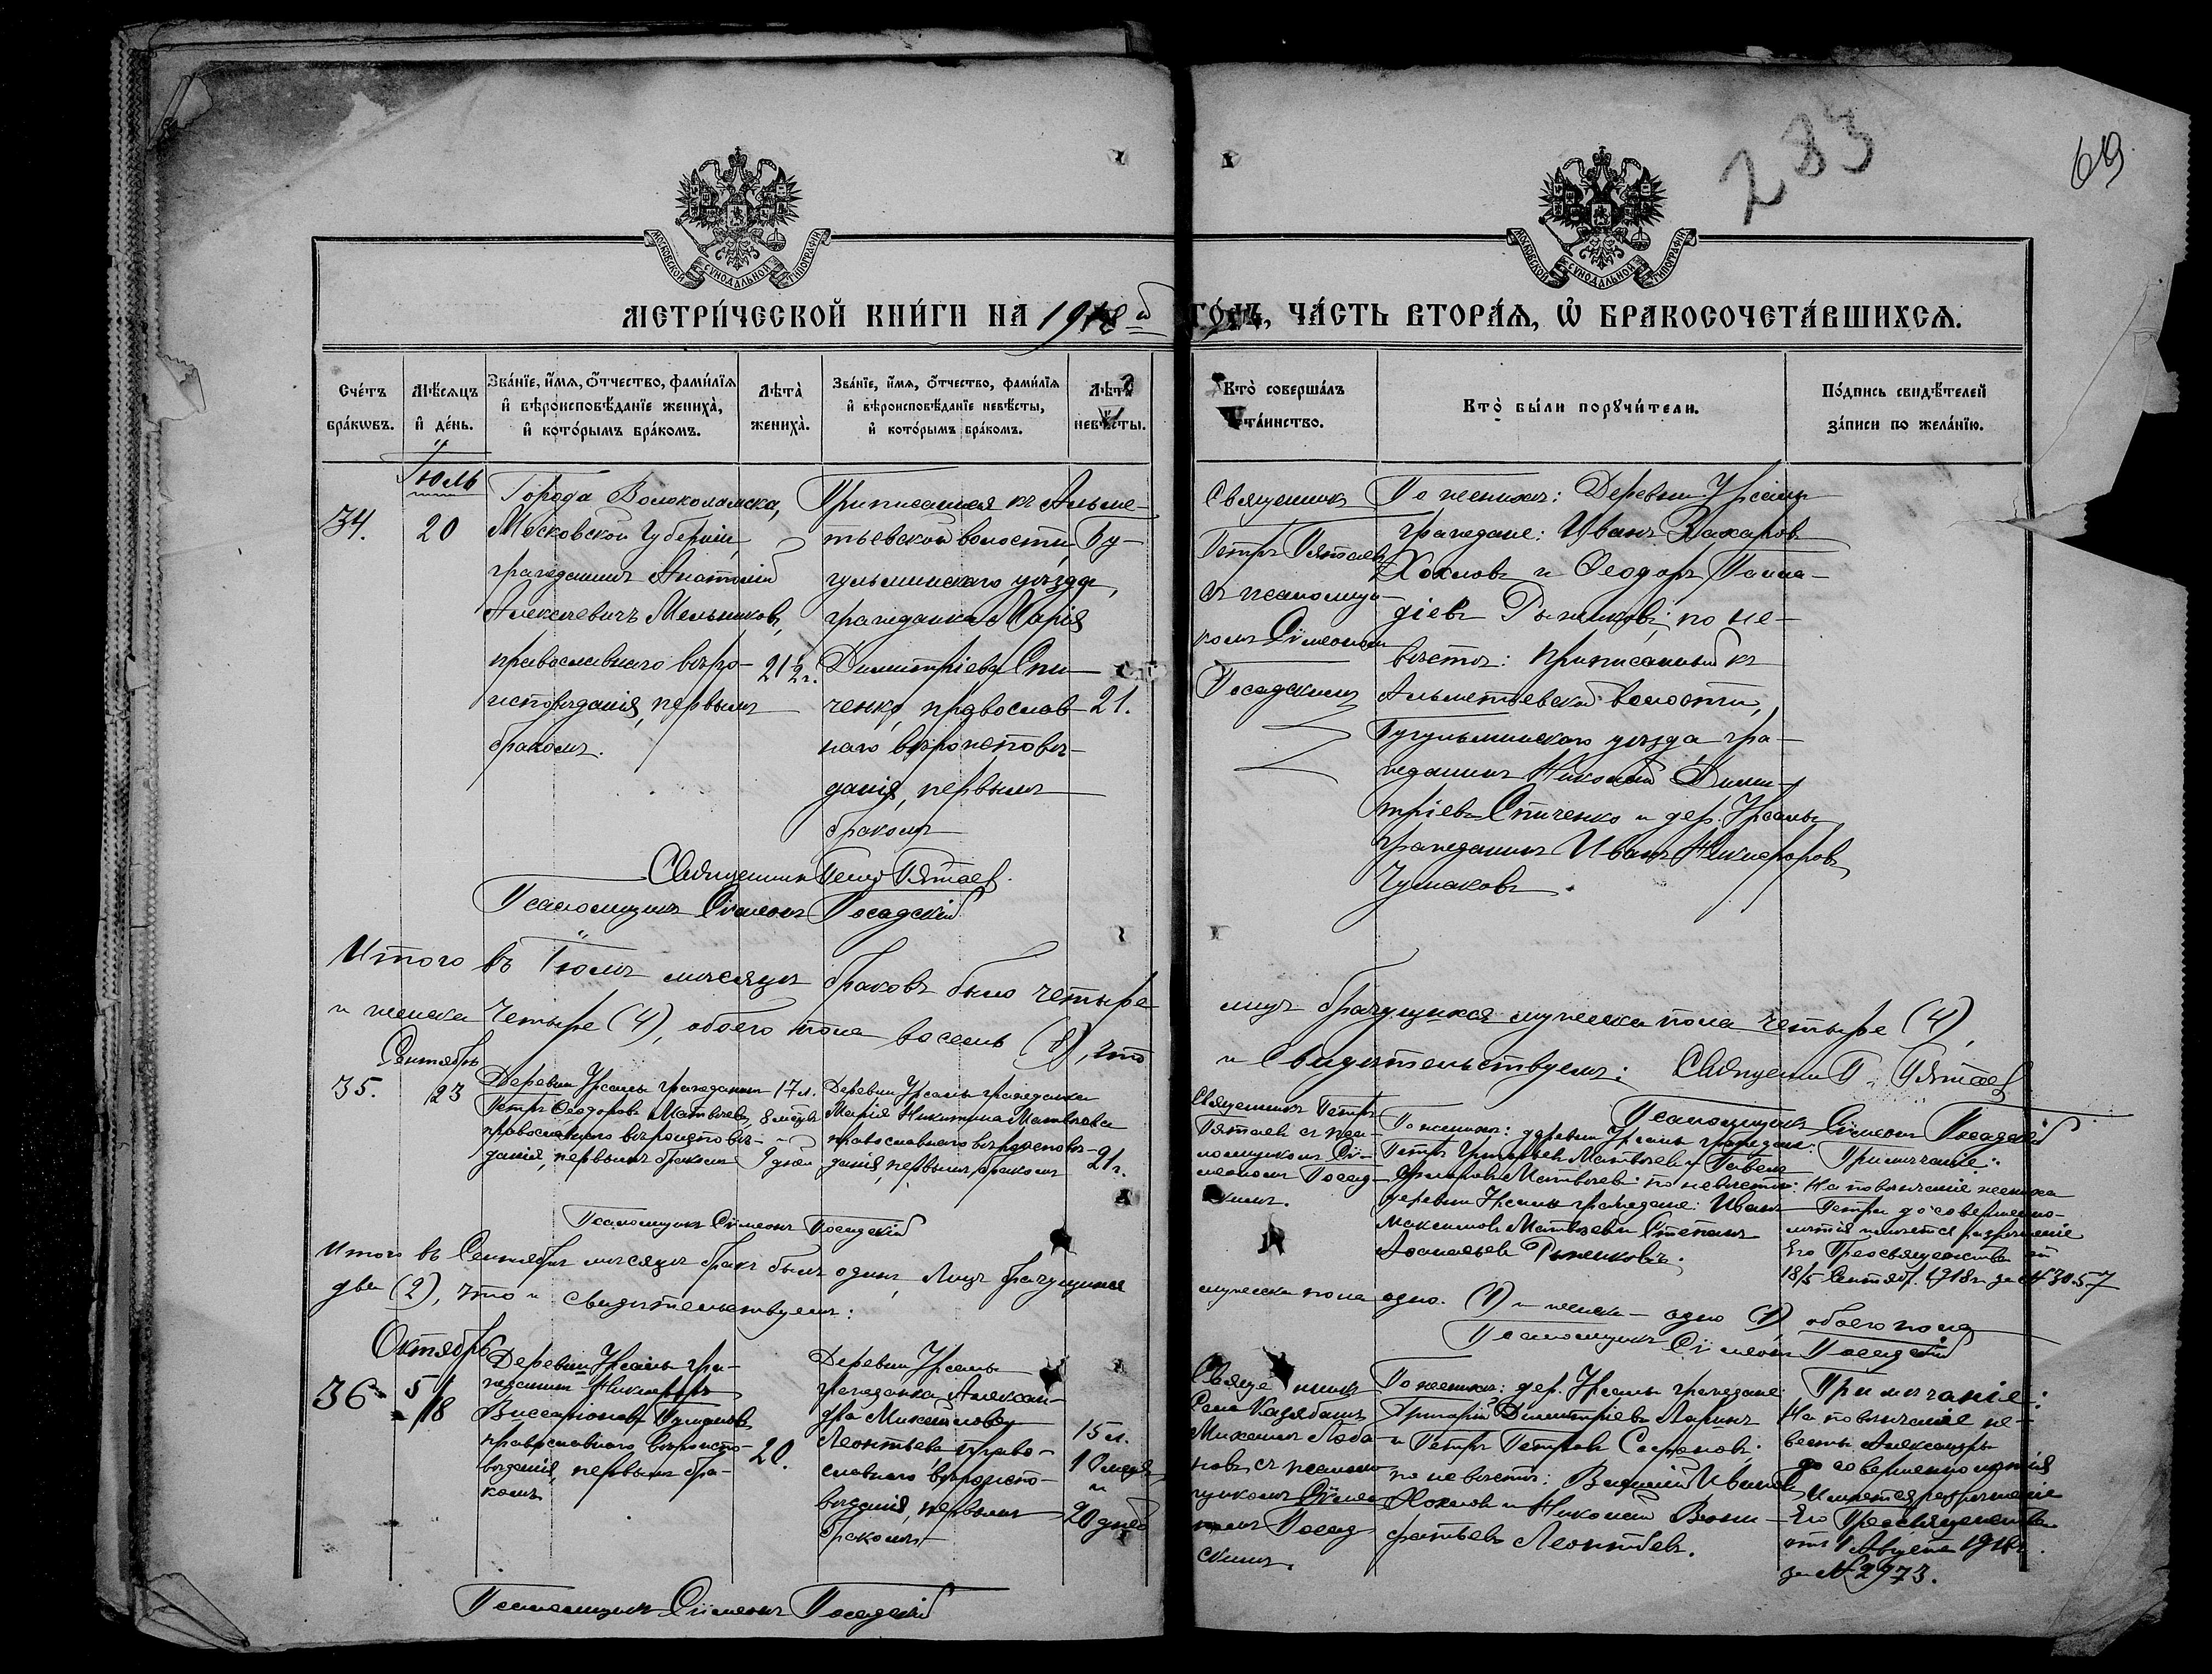 283
69
МОСКОВСКОЙ СѴНОДАЛЬНОЙ ТИПОГРАФІИ
МОСКОВСКОЙ СѴНОДАЛЬНОЙ ТИПОГРАФІИ
МЕТРИ́ЧЕСКОЙ КНИ́ГИ НА 1918й ГО́ДЪ, ЧА́СТЬ ВТОРА́Я, Ѽ БРАКОСОЧЕТА́ВШИХСЯ.
Сче́тъ бра́кѡвъ.
Мѣ́сяцъ и҆ де́нь.
Зва́нїе, и҆́мя, ѻ҆́тчество, фами́лїя и҆ вѣроисповѣ́данїе жениха̀, и҆ кото́рымъ бра́комъ.
Лѣта̀ жениха̀.
Зва́нїе, и҆́мя, ѻ҆́тчество, фами́лїя и҆ вѣроисповѣ́данїе невѣ́сты, и҆ кото́рымъ бра́комъ.
Лѣта̀ невѣ́сты.
Кто̀ соверша́лъ та́инство.
Кто̀ бы́ли порꙋчи́тели.
По́дпись свидѣ́телей за́писи по жела́нїю.
Іюль
34.
20
Города Волоколамска,
Московской Губерніи,
гражданинъ Анатолій
Алексѣевичъ Мельниковъ,
православнаго вѣро-
исповѣданія, первымъ
бракомъ.
21½г.
Приписанная къ Альме-
тьевской волости, Бу-
гульминскаго уѣзда,
гражданка Марія
Димитріева Спи-
ченко, православ-
наго вѣроисповѣ-
данія, первымъ
бракомъ
21.
Священникъ
Петръ Пятаевъ
съ псаломщи-
комъ Сѵмеономъ
Посадскимъ
По женихѣ: Деревни Урсалы
граждане: Иванъ Захаровъ
Хохловъ и Ѳеодоръ
діевъ Рыженковъ; по не-
вѣстѣ: приписанный къ
Альметьевской волости,
Бугульминскаго уѣзда гра-
жданинъ Николай Дими-
тріевъ Спиченко и дер. Урсалы
гражданинъ Иванъ Никифоровъ
Чумаковъ.
Священникъ Петръ Пятаев.
Псаломщикъ Сѵмеонъ Посадскій
Итого въ Іюлѣ мѣсяцѣ браковъ было четыре
лицъ брачущихся мужеска пола четыре (4),
и женска четыре (4), обоего пола восемь (8), что
и свидѣтельствуемъ: Священникъ П. Пятаев
Псаломщикъ Сѵмеонъ Посадскій
Сентябрь
35.
23
Деревни Урсалы гражданинъ
Петръ Ѳеодоровъ Матвѣевъ,
православнаго вѣроисповѣ-
данія, первымъ бракомъ
17 л.
8 мѣсц.
9 дней
Деревни Урсалы гражданка
Марія Никитина Матвѣева
православнаго вѣроисповѣ-
данія, первымъ бракомъ
21г.
Священникъ Петръ
Пятаевъ съ пса-
ломщикомъ Сѵ-
меономъ Посад-
скимъ.
По женихѣ: деревни Урсалы граждане:
Петръ Григорьевъ Матвѣевъ и Павелъ
Матвѣевъ; по невѣстѣ:
деревни Урсалы граждане: Иванъ
Максимовъ Матвѣевъ и Степанъ
Аѳанасьевъ Рыженковъ.
Примѣчаніе:
На повѣнчаніе жениха
Петра до совершенно-
лѣтія имѣется разрѣшеніе
Его Преосвященства от
18/5 Сентяб. 1918г за № 3057
Псаломщикъ Сѵмеонъ Посадскій
Итого въ Сентябрѣ мѣсяцѣ бракъ былъ одинъ, Лицъ брачущихся
мужеска пола одно (1) и женска – одно (1) обоего пола
два (2), что и свидѣтельствуемъ:
Псаломщикъ Сѵмеонъ Посадскій
Октябрь
36
5/18
Деревни Урсалы гра-
жданинъ Никифоръ
Виссаріоновъ
православнаго вѣроиспо-
вѣданія, первымъ бра-
комъ
20.
Деревни Урсалы
гражданка Алексан-
дра Михайлова
Леонтьева право-
славнаго вѣроиспо-
вѣданія, первымъ
бракомъ
15 л.
10 мѣсц.
и
20 дней
Священникъ
Села
Михаилъ Лоба-
новъ съ псалом-
щикомъ Сѵмео-
номъ Посад-
скимъ.
По женихѣ: дер. Урсалы граждане:
Григорій Димитріевъ Ларинъ
и Петръ Петровъ Сафоновъ;
по невѣстѣ: Василій Ивановъ
Хохловъ и Николай Вони-
фатьевъ Леонтьевъ.
Примѣчаніе:
На повѣнчаніе не-
вѣсты Александры
до совершеннолѣтія
имѣется разрѣшеніе
Его Преосвященства
отъ 1 Августа 1918г.
за № 2973.
Псаломщикъ Сѵмеонъ Посадскій